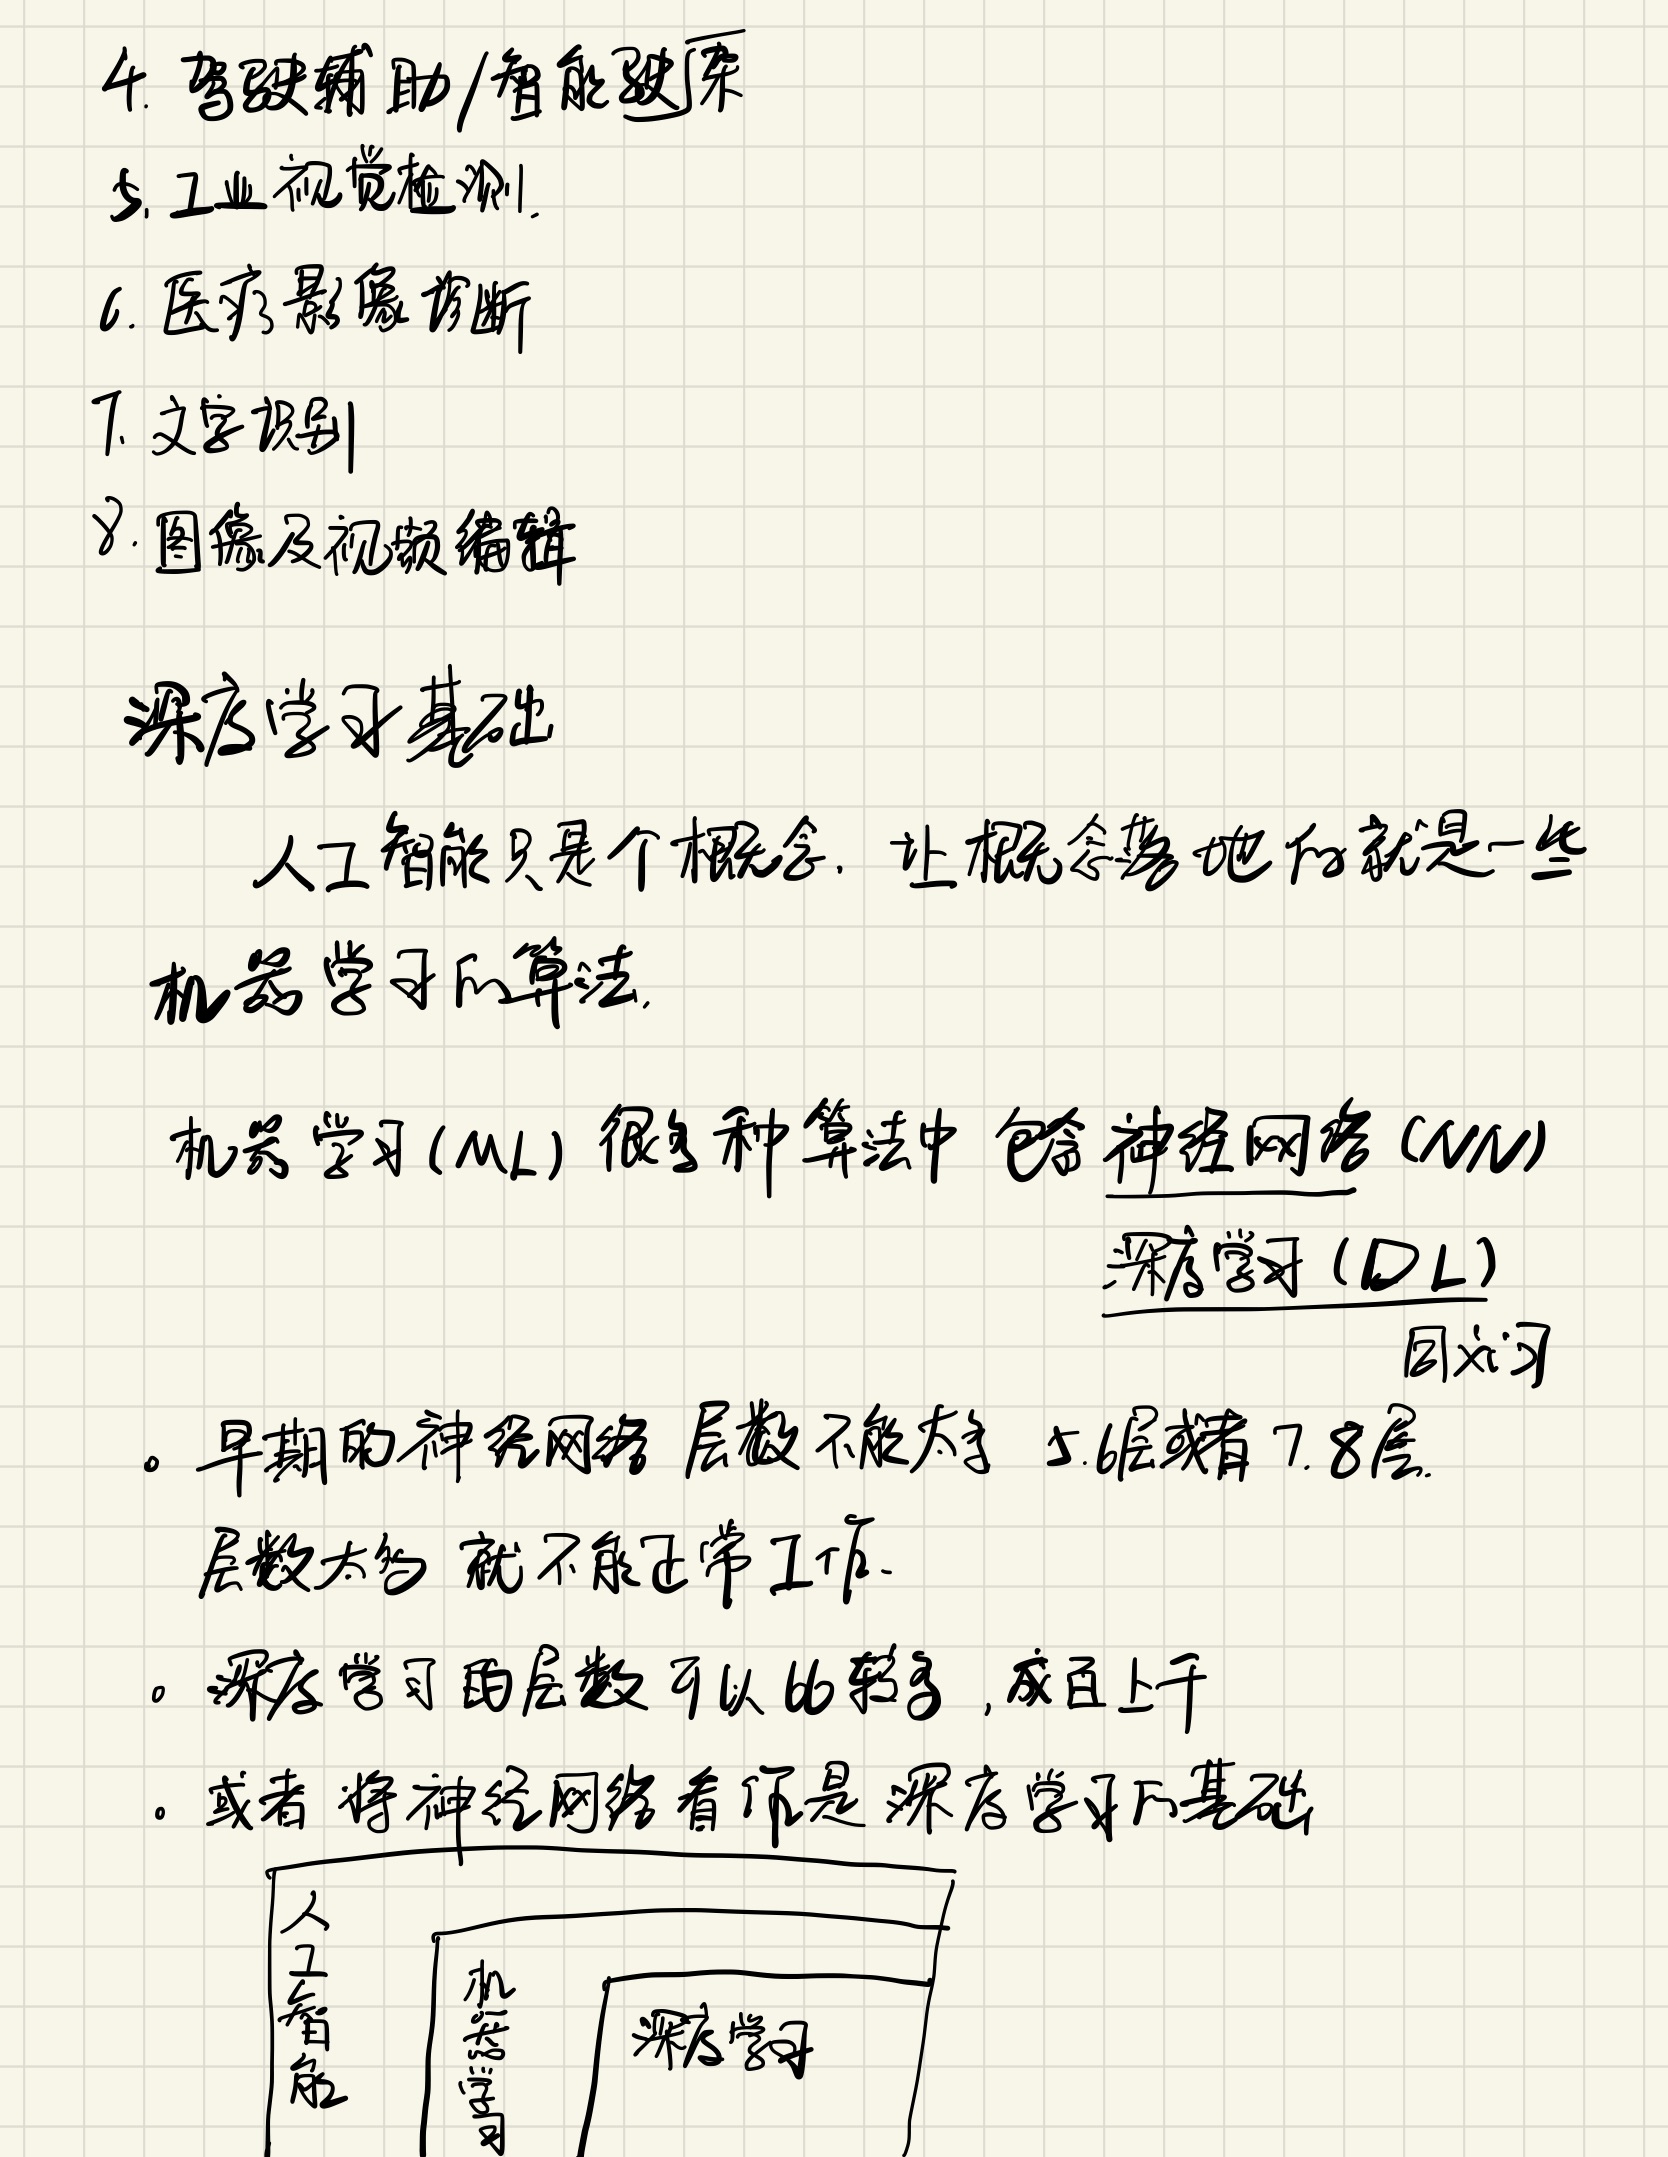 4. 驾驶辅助/智能驶
5. 工业视觉检测.
6. 医疗影像诊断
7. 文字识别
8. 图像及视频编辑
深度学习基础
人工智能只是个概念. 让概念落地的就是一些
机器学习的算法.
机器学习(ML) 很多种算法中 包含神经网络 (NN)
深度学习(DL)
。早期的神经网络 层数不能太多 5.6层或者7.8层.
层数太多 就不能正常工作.
。深度学习的层数可以比较多,成百上千
。或者 将神经网络看作是 深度学习的基础
人工智能
机器学习
深度学习